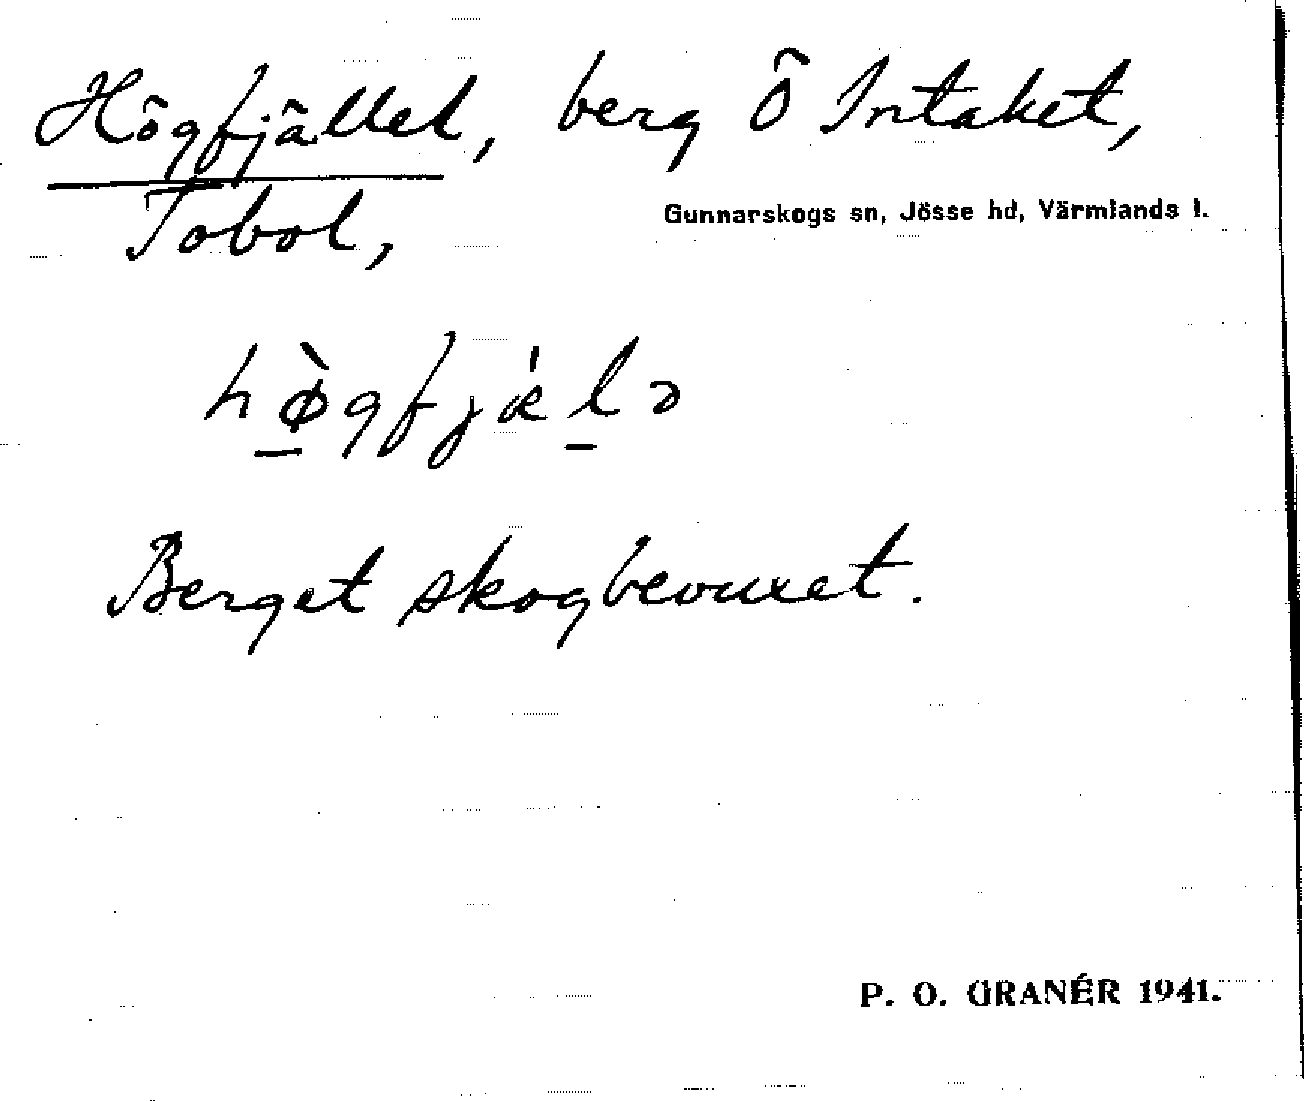 Högfjället, berg Ö Intaket,
Tobol,
Gunnarskogs sn, Jösse hd, Värmlands l.
hø̀gfjǽlə
Berget skogbevuxet.
P. O. GRANÉR 1941.